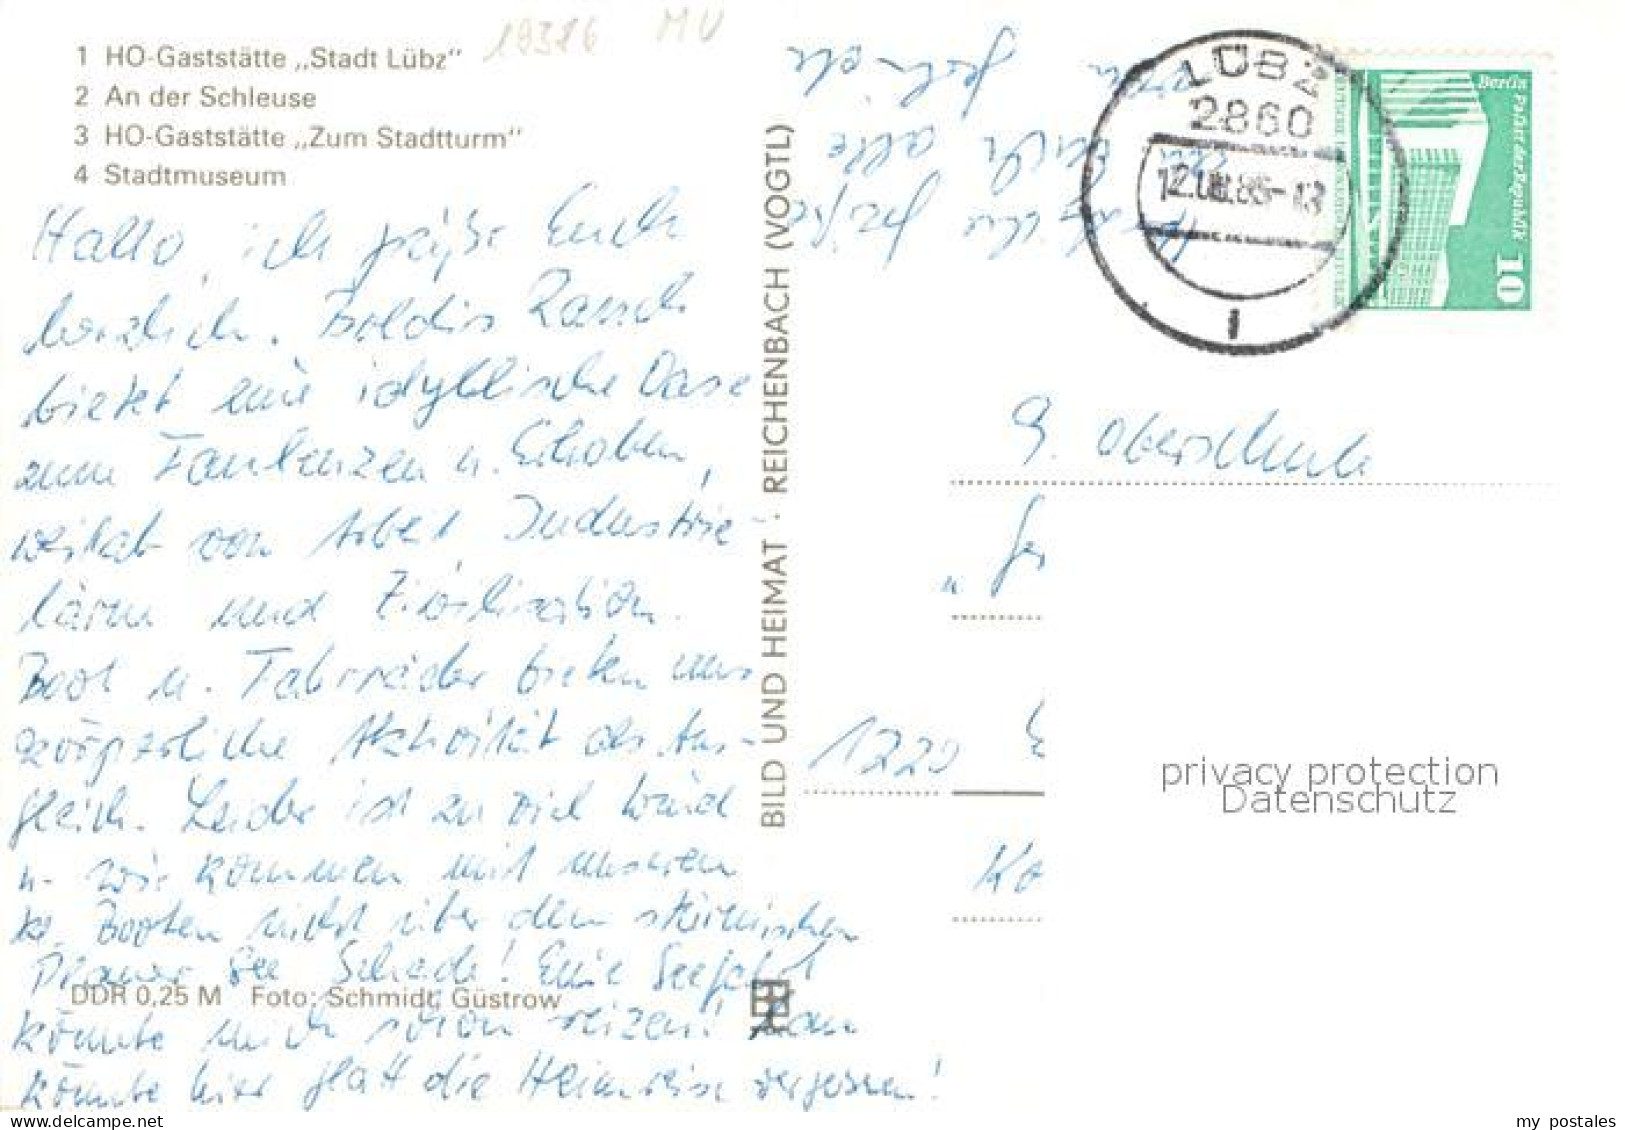 19386 MV
1 HO-Gaststätte „Stadt Lübz“
2 An der Schleuse
3 HO-Gaststätte „Zum Stadtturm“
4 Stadtmuseum
Hallo, ich grüße Euch
herzlich. Boldin
bietet eine idyllische Oase
zum Faulenzen u. Erholen,
weitab von Arbeit, Industrie-
lärm und Zivilisation.
Boot u. Fahrräder bieten uns
körperliche Aktivität als Aus-
gleich. Leider ist zu viel Wind
u. wir kommen mit unseren
Booten nicht über den stürmischen
Plauer See. Schade! Eine Seefahrt
könnte mich schon reizen! Man
könnte hier glatt die Heimreise vergessen!
DDR 0,25 M Foto: Schmidt, Güstrow
BILD UND HEIMAT · REICHENBACH (VOGTL)
Euch alle
LÜBZ
2860
1
Berlin Palast der Republik
10
9. Oberschule
1220
Ko
privacy protection
Datenschutz
my postales
www.delcampe.net